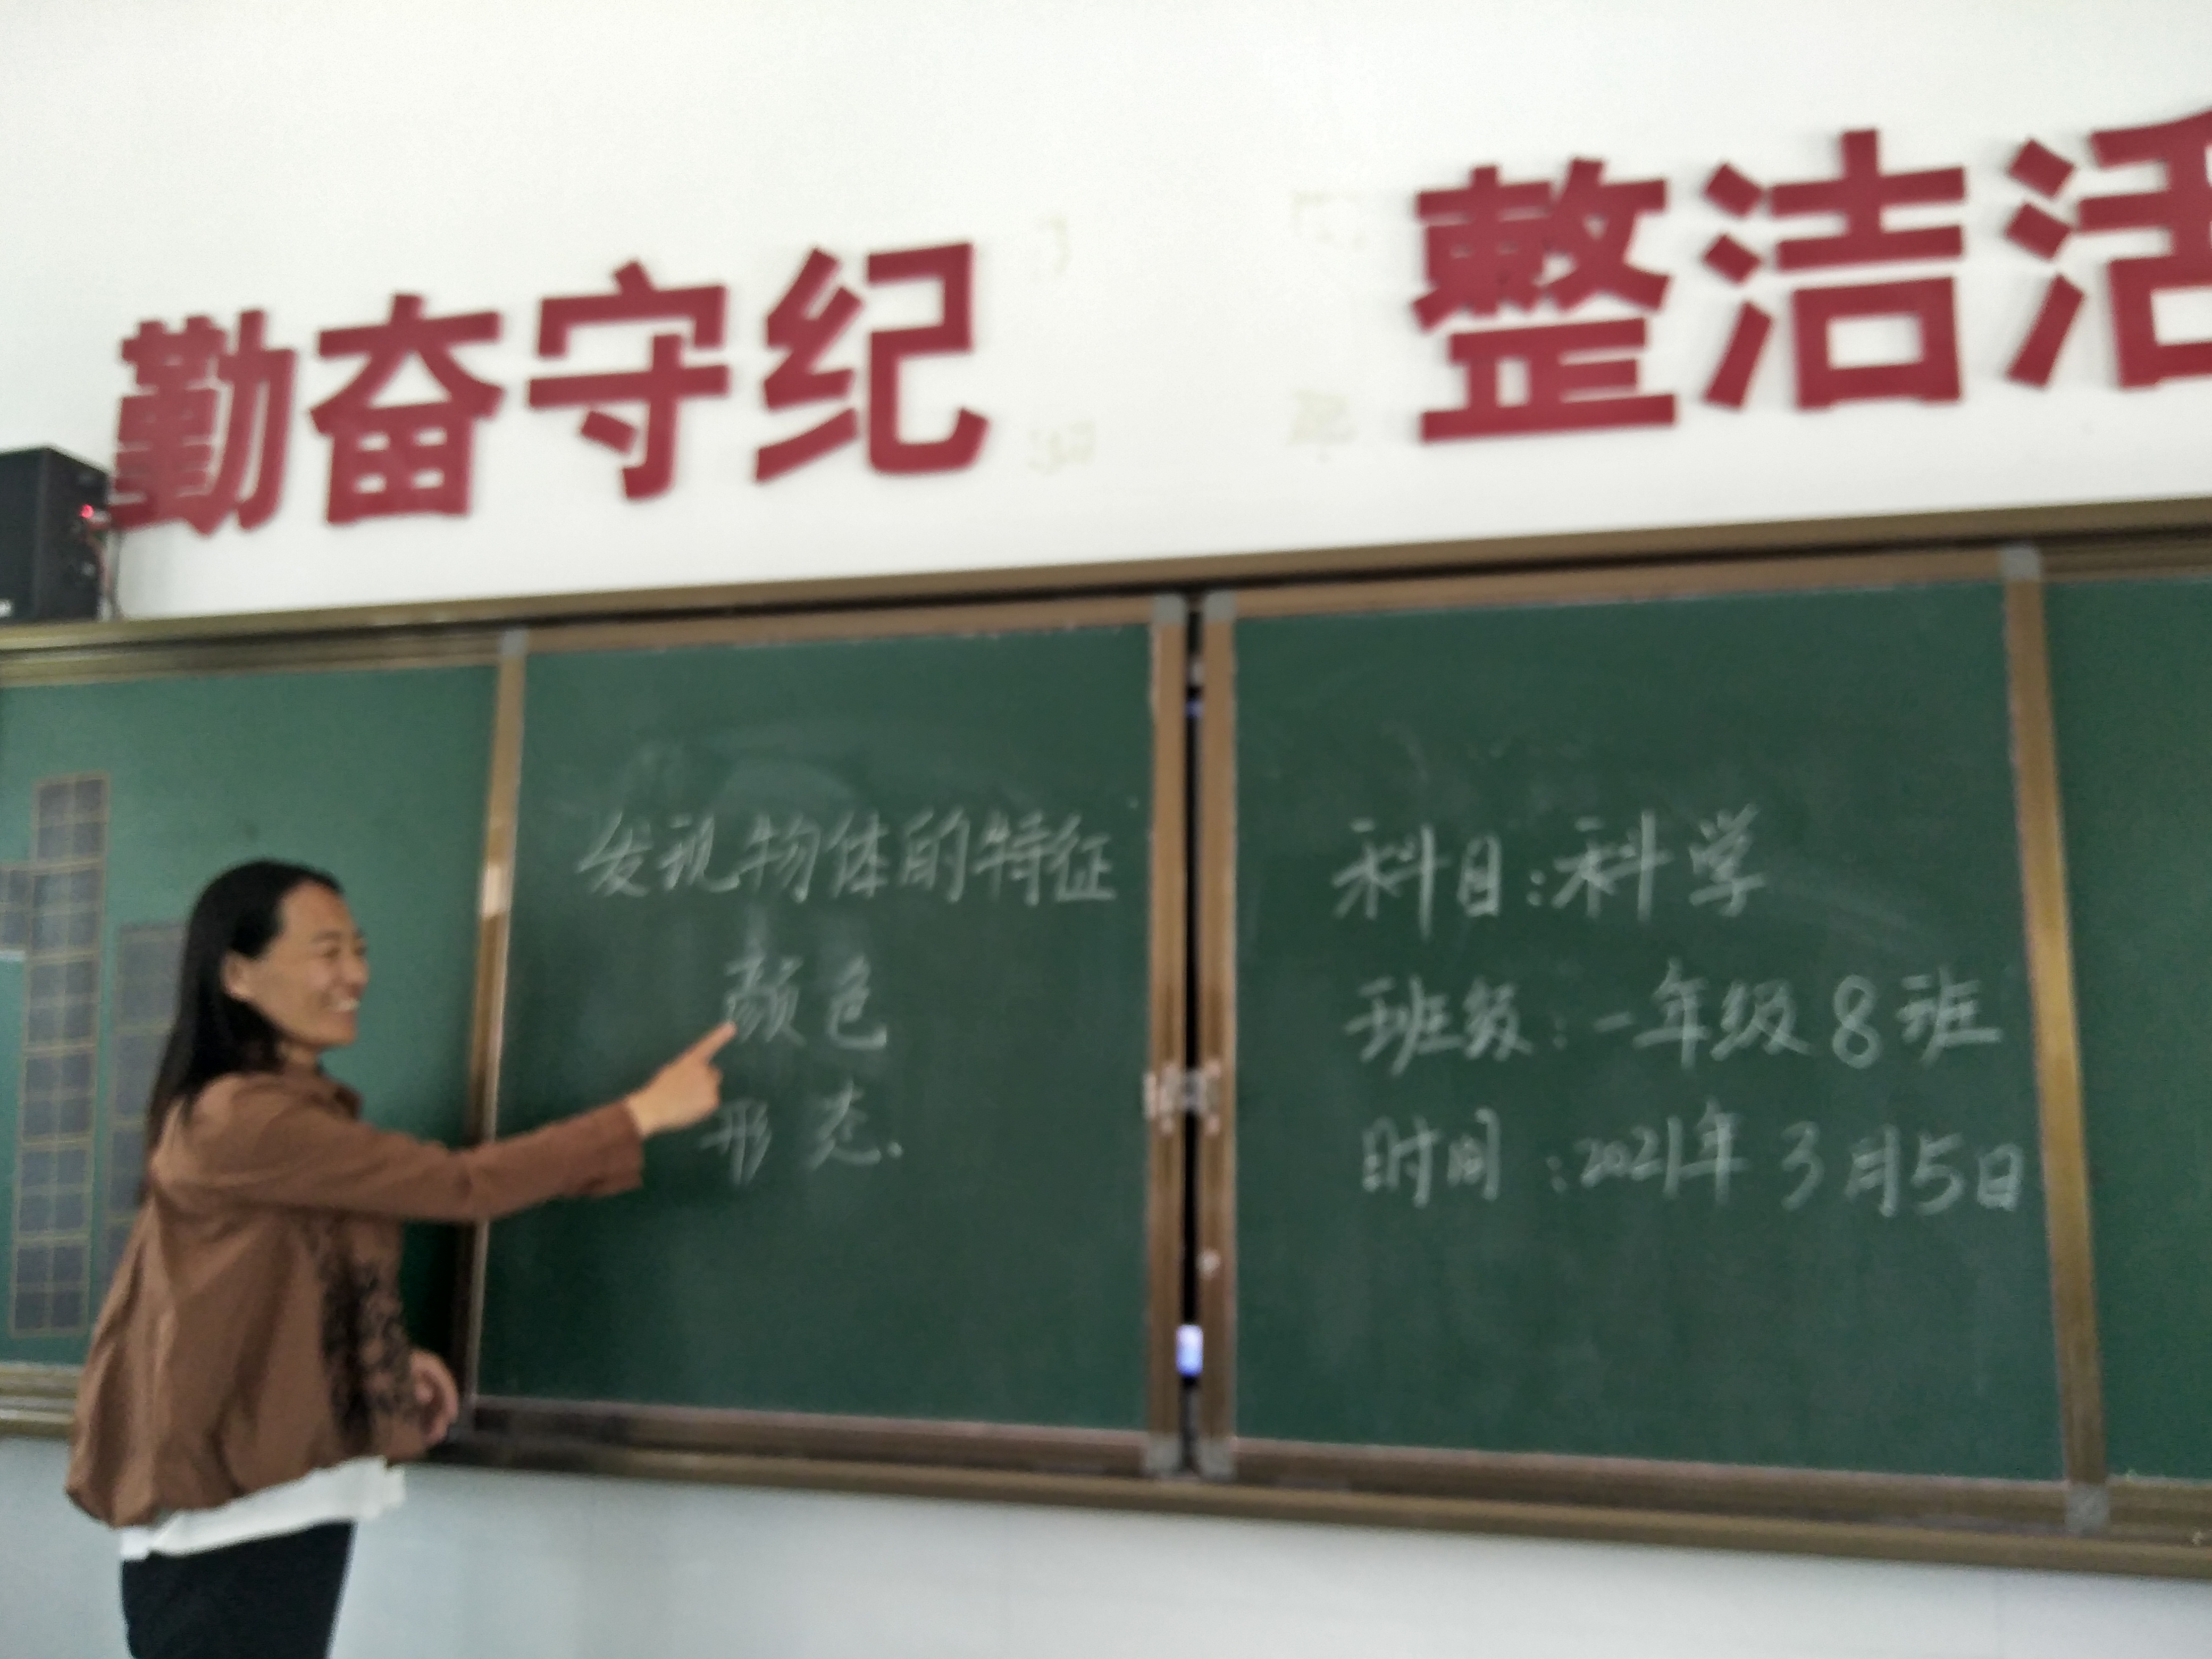 勤奋守纪 整洁活
发现物体的特征
颜色
形态.
科目:科学
班级:一年级8班
时间:2021年3月5日